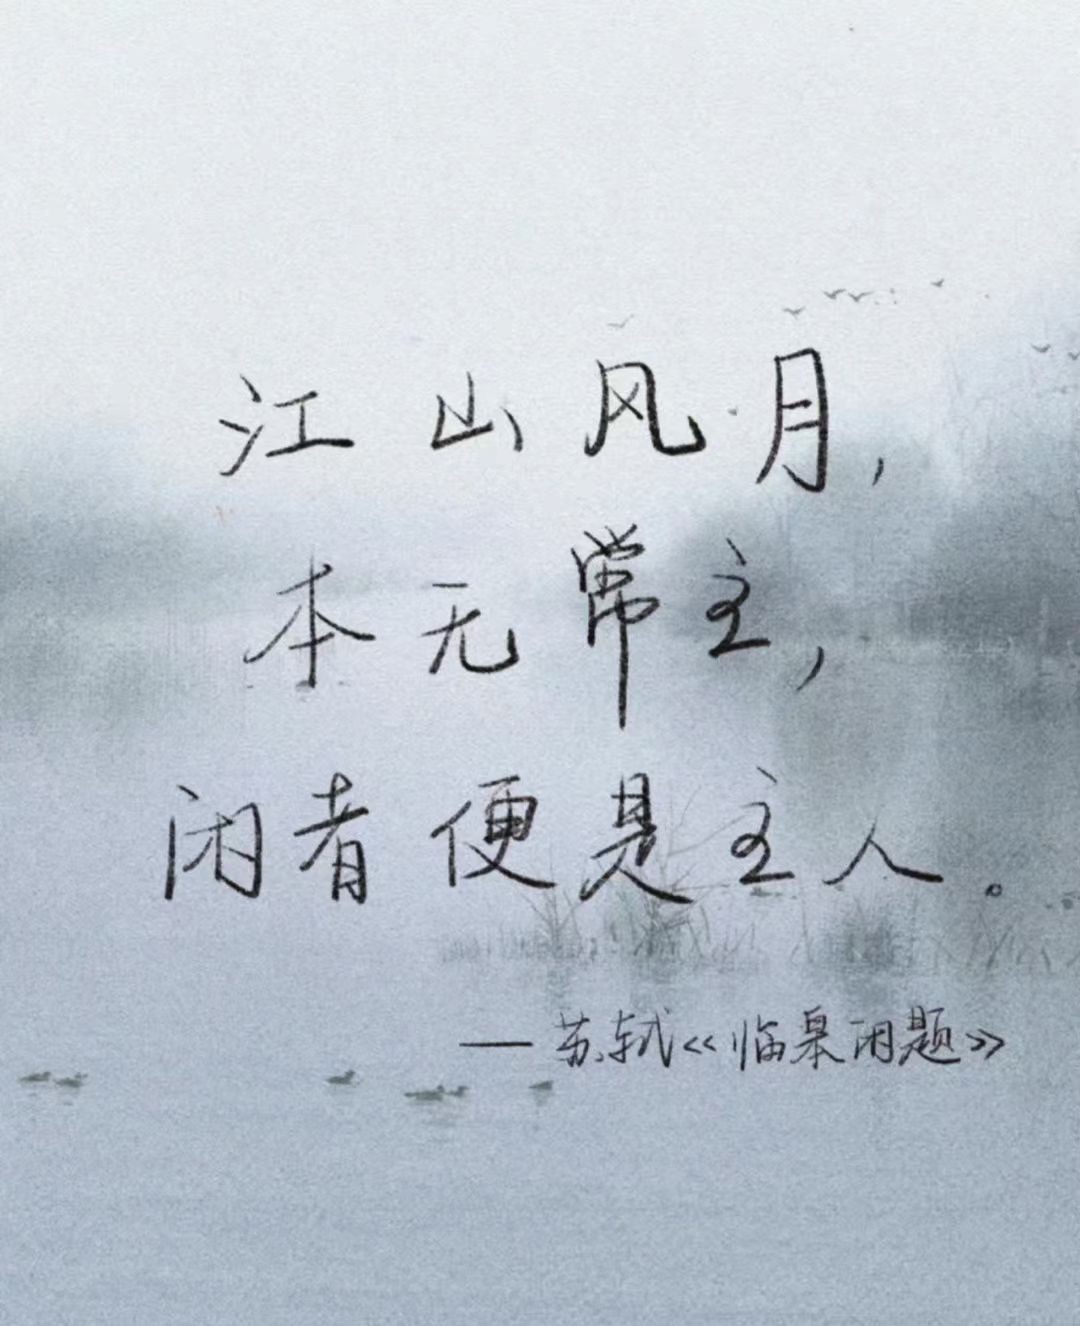 江山风月,
本无常主,
闲者便是主人。
—苏轼《临皋闲题》